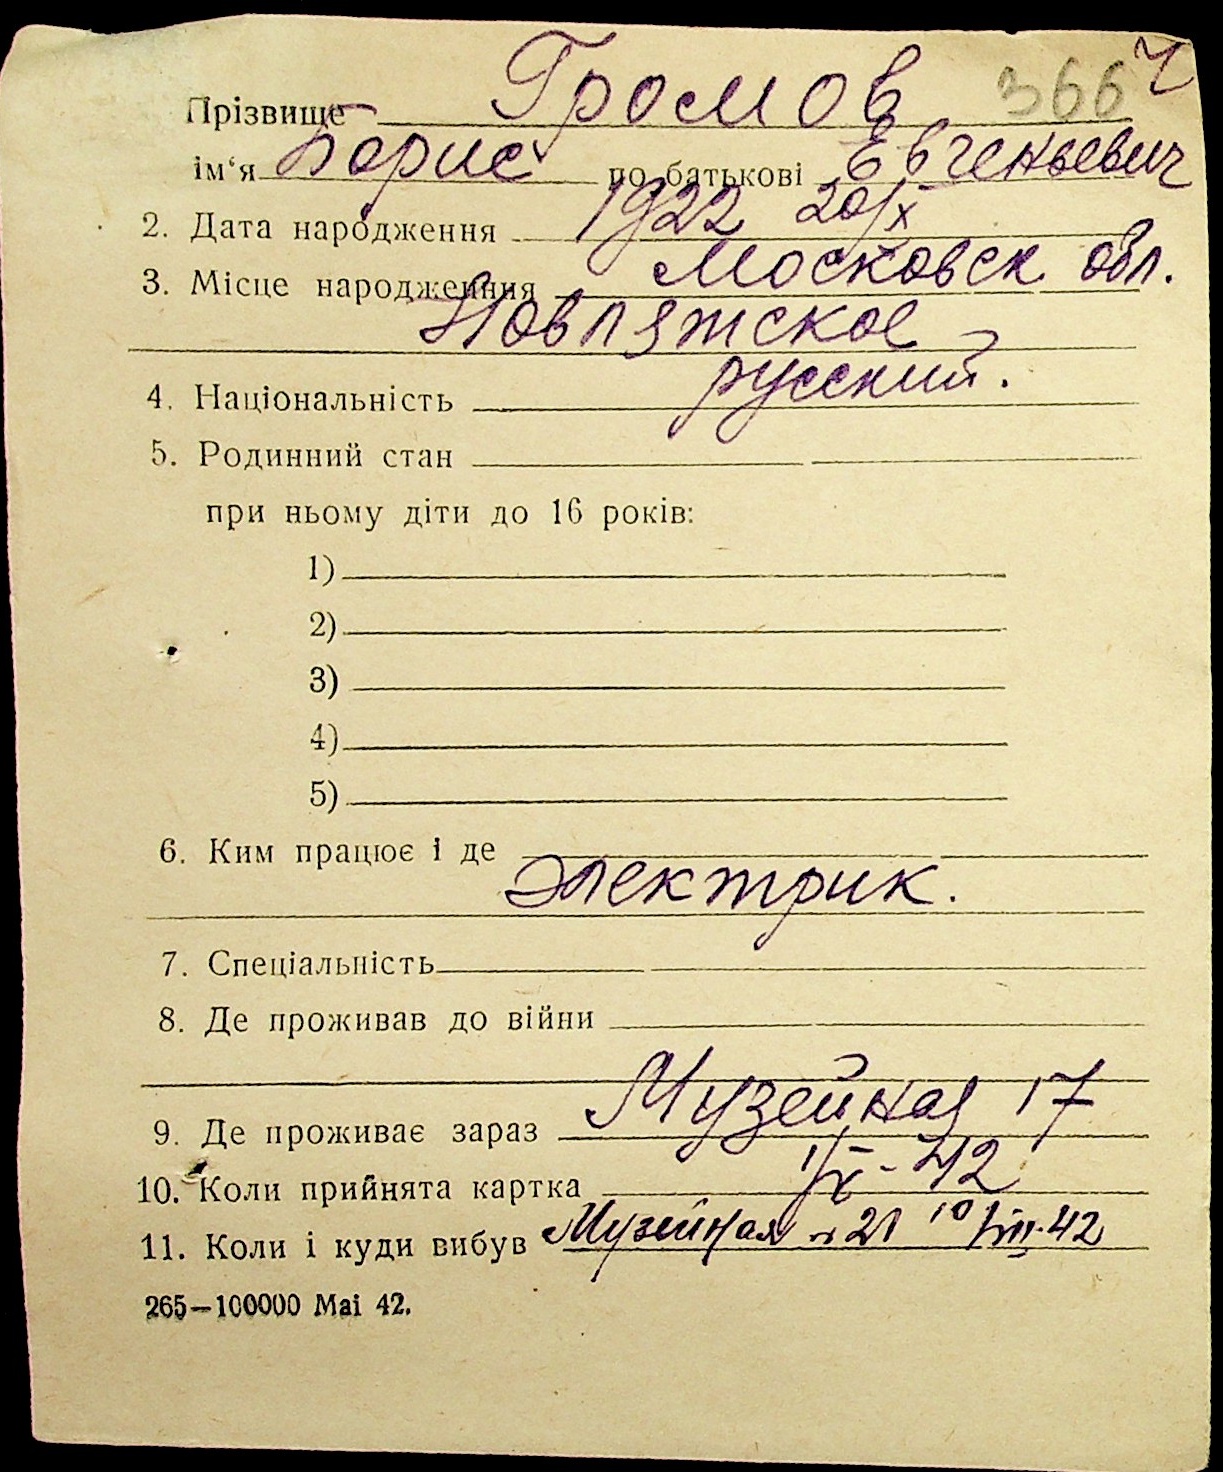 Прізвище Громов 366 Ч
ім'я Борис по батькові Евгеньевич
2. Дата народження 1922 20/X
3. Місце народження Московск обл.
4. Національність русский.
5. Родинний стан
при ньому діти до 16 років:
1)
2)
3)
4)
5)
6. Ким працює і де
электрик.
7. Спеціальність
8. Де проживав до війни
9. Де проживає зараз Музейная 17
10. Коли прийнята картка
11. Коли і куди вибув Музейная 21 10/VIII-42
265—100000 Mai 42.